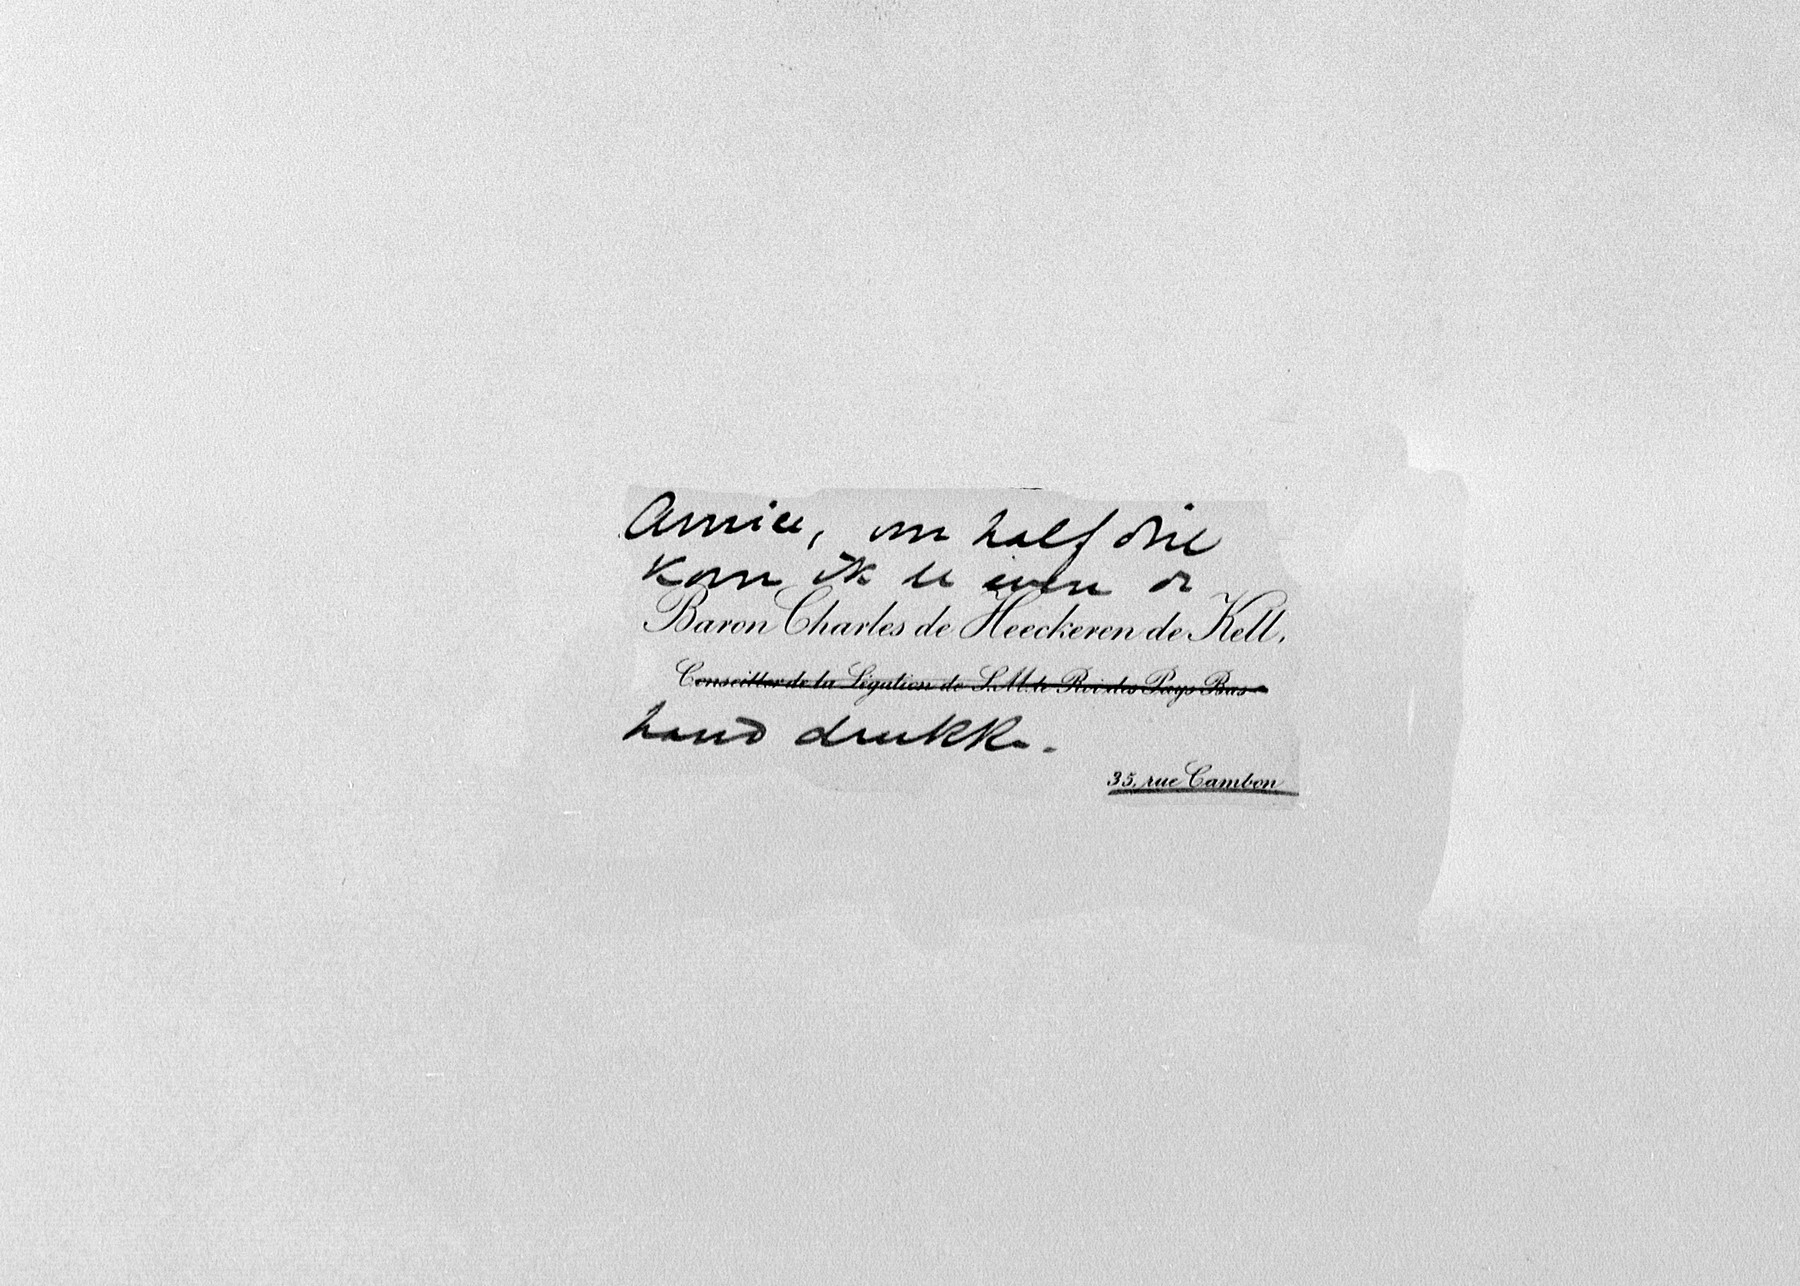 Amice, om half drie
kom ik u even de
Baron Charles de Heeckeren de Kell,
Conseiller de la Légation de S. M. le Roi des Pays Bas
hand drukken.
35, rue Cambon